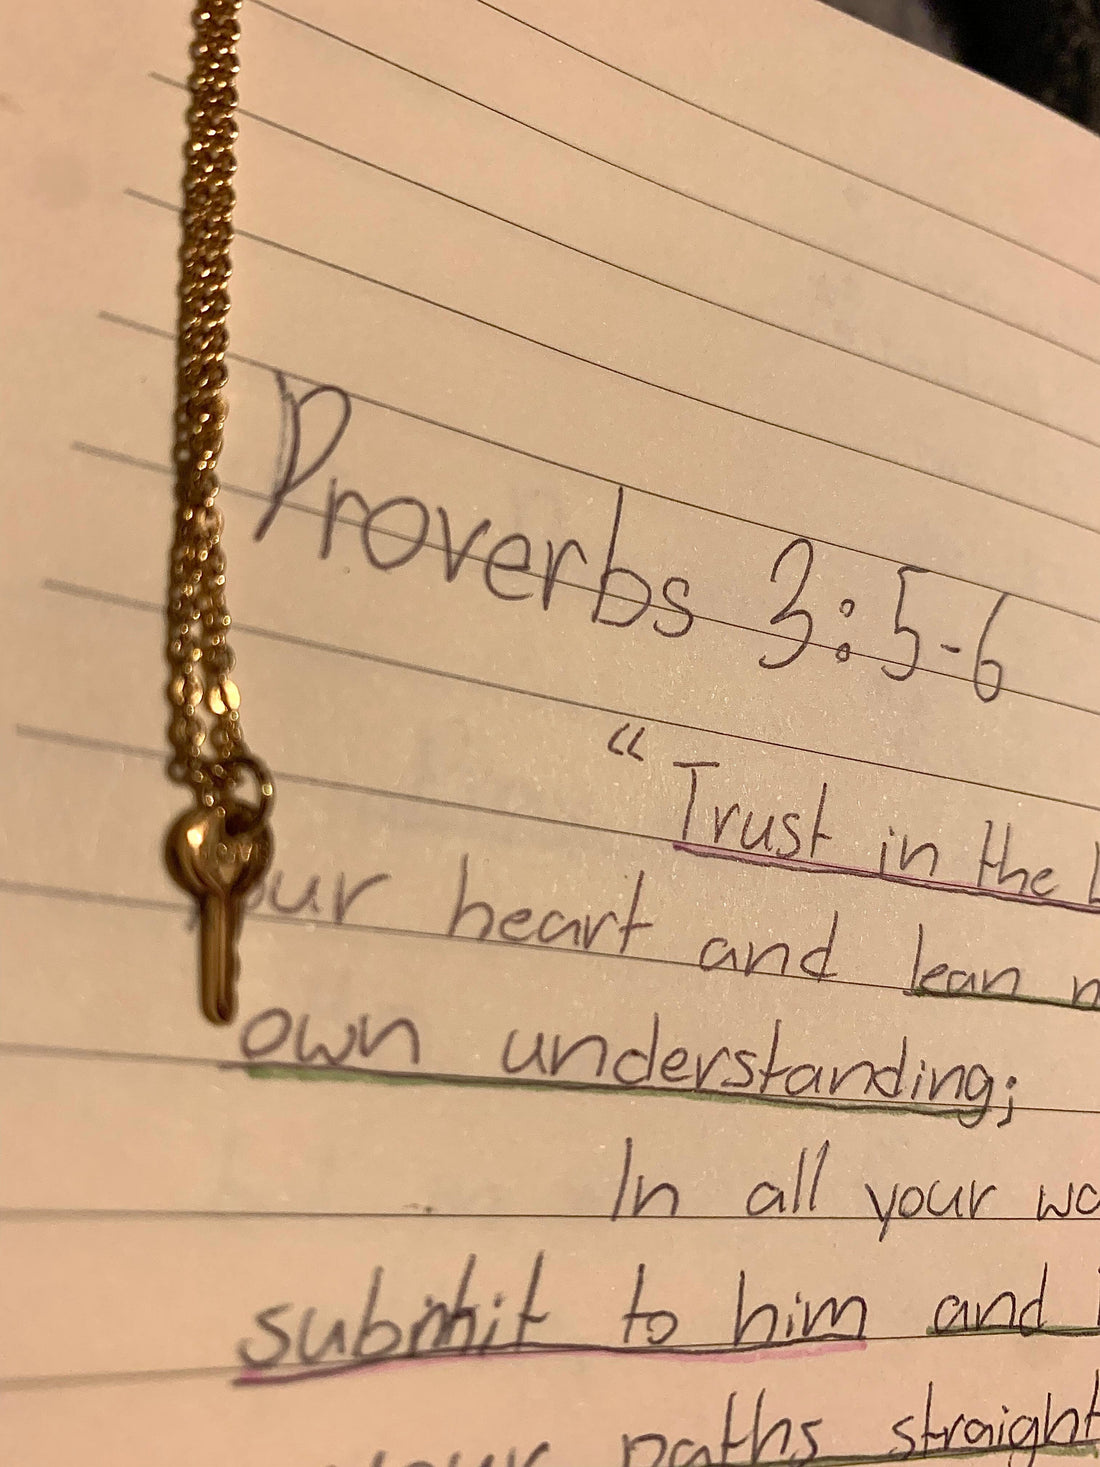 Proverbs 3:5-6
“Trust in the L
our heart and lean n
own understanding;
In all your wa
submit to him and
your paths straight